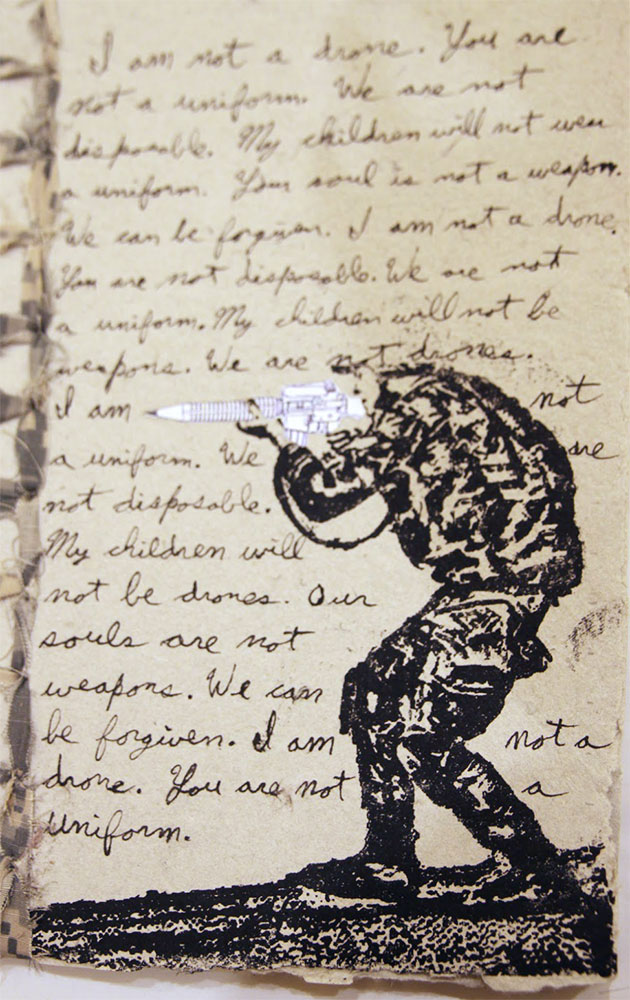 I am not a drone. You are
not a uniform. We are not
disposable. My children will not wear
a uniform. Your soul is not a weapon.
We can be forgiven. I am not a drone.
You are not disposable. We are not
a uniform. My children will not be
weapons. We are not drones.
I am not
a uniform. We are
not disposable.
My children will
not be drones. Our
souls are not
weapons. We can
be forgiven. I am not a
drone. You are not a
uniform.